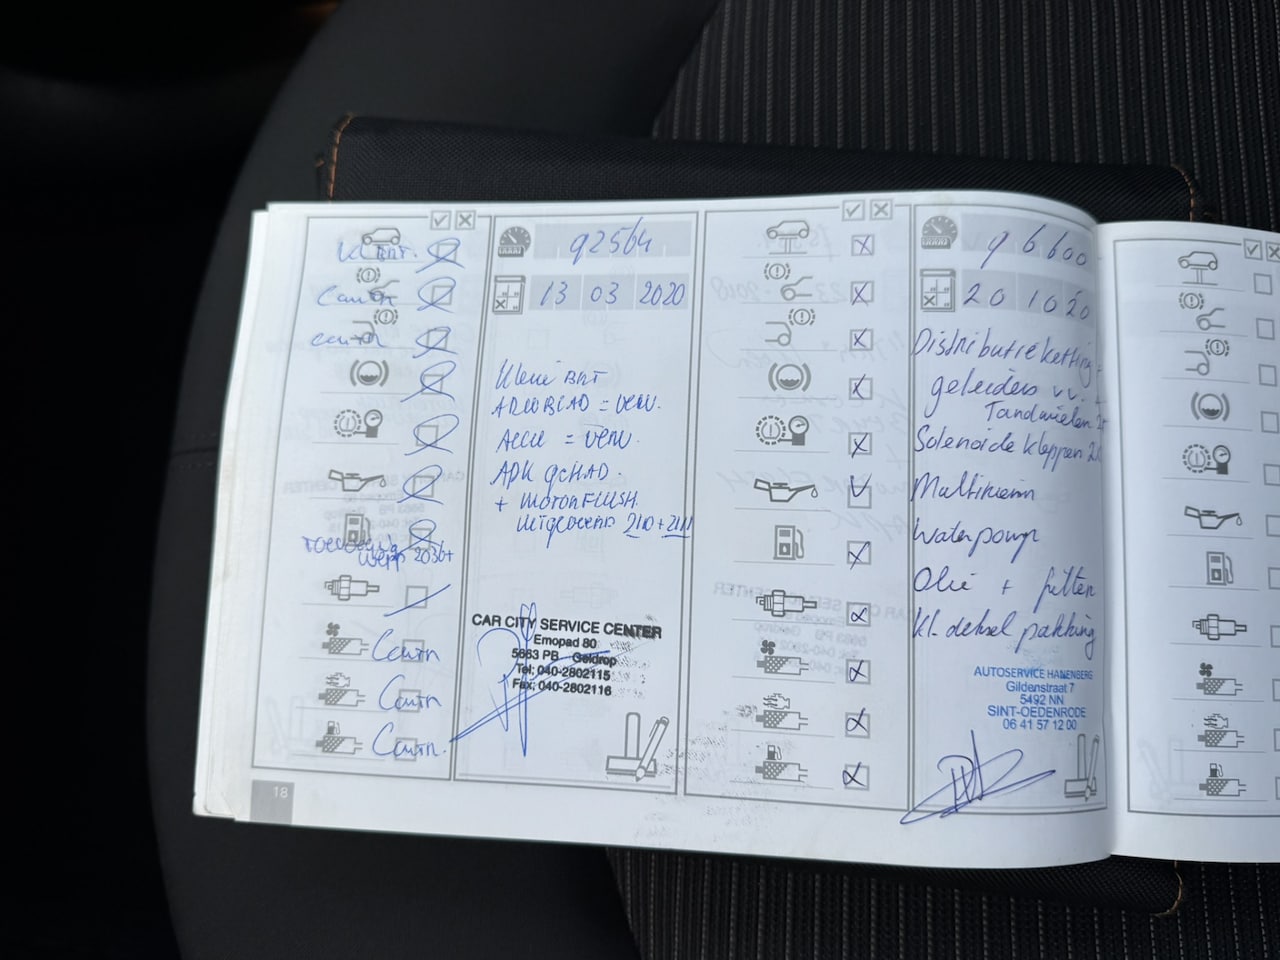 Contr
contr
Contr
Contr
Contr.
18
92564
13 03 2020
Kleine BRT
= verv.
Accu = verv.
APK gehad.
+ motorflush
2110 + 2111
CAR CITY SERVICE CENTER
Emopad 80
5663 PB Geldrop
Tel: 040-2802115
Fax: 040-2802116
96600
20 10 20
Distributieketting
geleiders vv.
Tandwielen 2x
Solenoide kleppen 2x
Multiriem
Waterpomp
Olie + filter
kl. deksel pakking
AUTOSERVICE HANENBERG
Gildenstraat 7
5492 NN
SINT-OEDENRODE
06 41 57 12 00